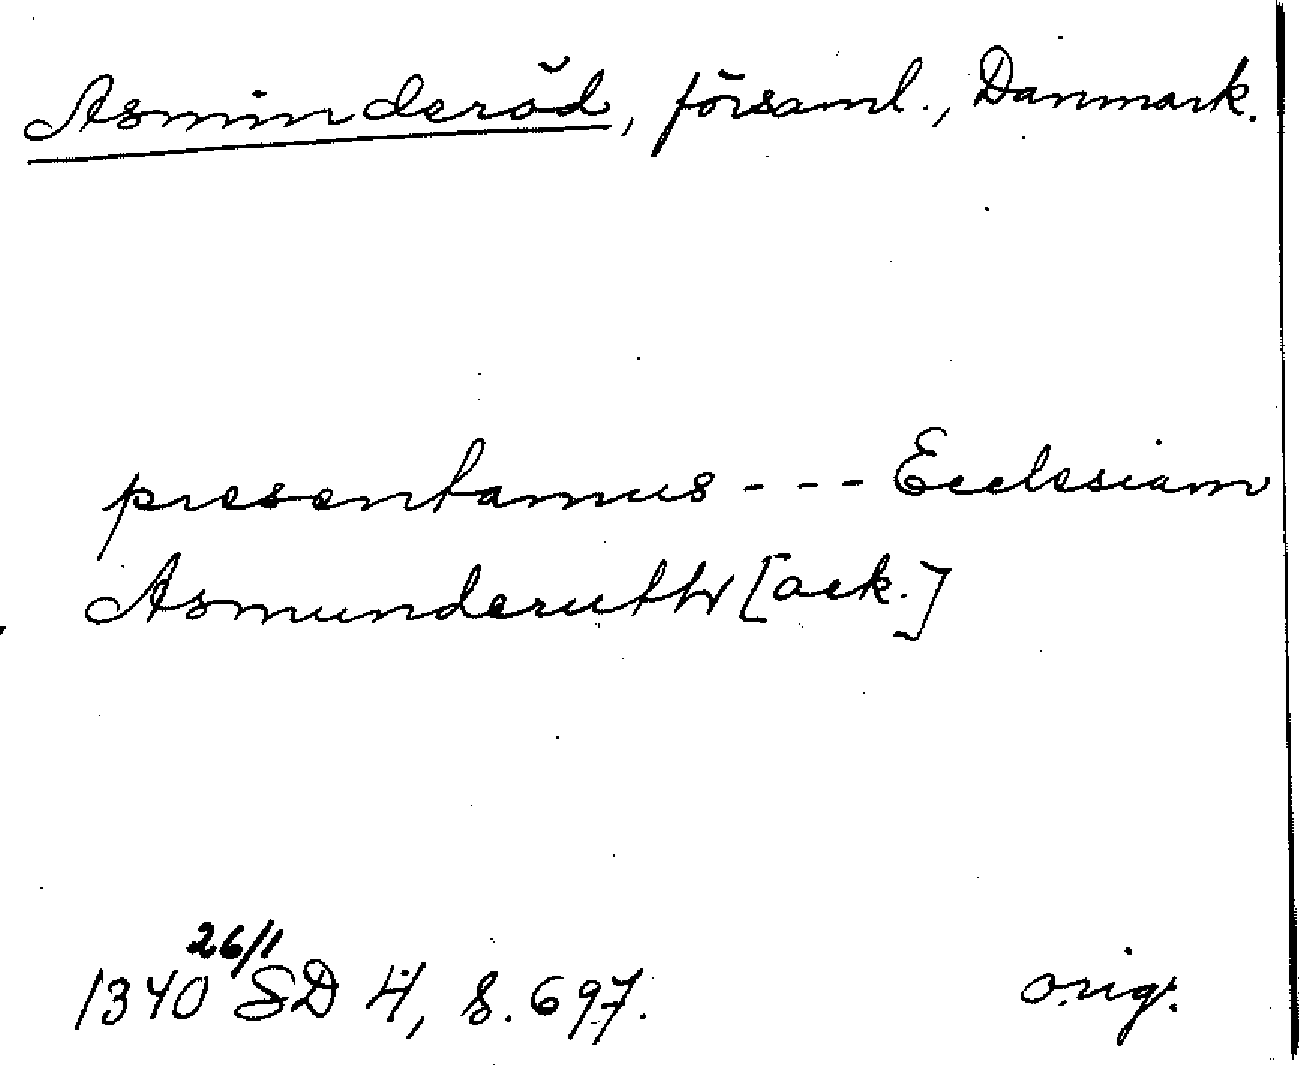 Asminderöd, församl., Danmark.
presentamus --- Ecclesiam
Asmunderuth [ack.]
1340 26/1 SD 4, s. 697. orig.